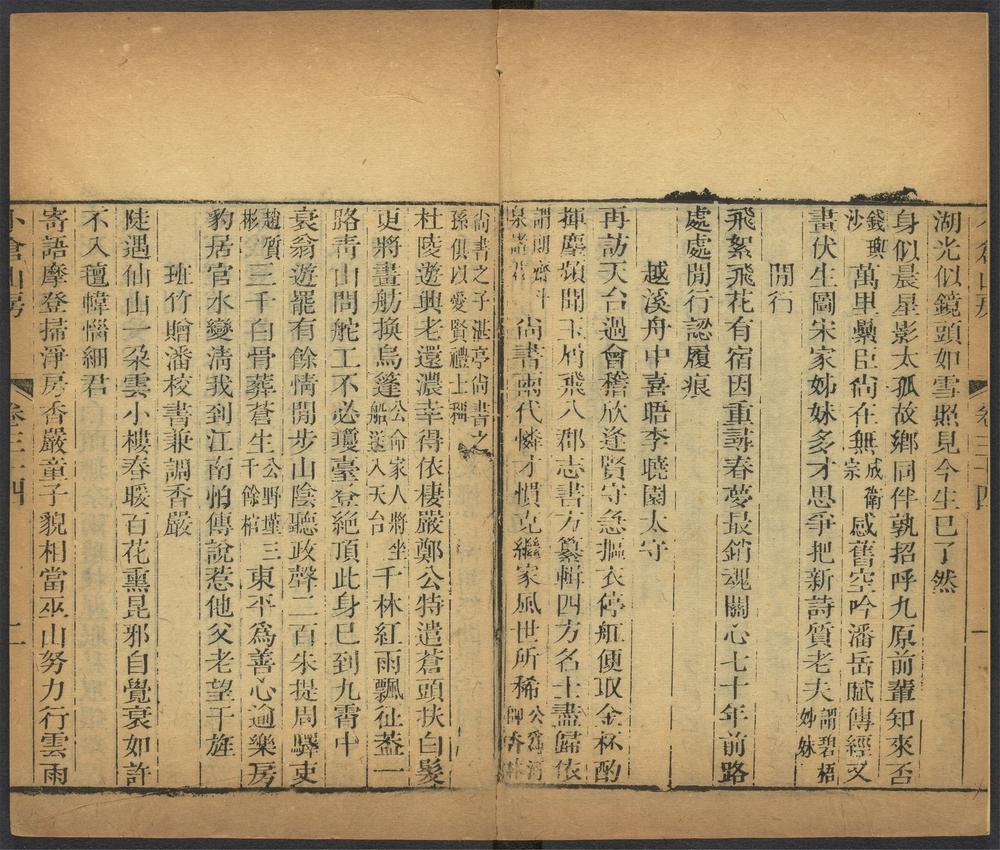 湖光似鏡頭如雪照見今生已了然
身似晨星影太孤故鄉同伴孰招呼九原前輩知來否
錢璵沙萬里纍臣尚在無成衛宗感舊空吟潘岳賦傳經又
畫伏生圖宋家姊妹多才思爭把新詩質老夫謂碧梧姊妹
閒行
飛絮飛花有宿因重尋春夢最銷魂關心七十年前路
處處閒行認履痕
越溪舟中喜晤李曉園太守
再訪天台過會稽欣逢賢守急摳衣停舡便取金杯酌
揮麈頻聞玉屑飛八郡志書方纂輯四方名士盡歸依
謂則齋泉諸君尚書兩代憐才慣克繼家風世所稀公為河
尚書之子湛亭尚書之孫俱以愛賢禮士稱
杜陵遊興老還濃幸得依棲嚴鄭公特遣蒼頭扶白髮
更將畫舫換烏篷公命家人將坐船送入天台千林紅雨飄征蓋一
路青山問舵工不必瓊臺登絕頂此身已到九霄中
衰翁遊罷有餘情閒步山陰聽政聲二百朱提周驛吏
趙質彬三千白骨葬蒼生公野瑾三千餘棺東平為善心逾樂房
豹居官水變淸我到江南怕傳說惹他父老望干旌
班竹贈潘校書兼調香嚴
陡遇仙山一朶雲小樓春暖百花熏是邪自覺衰如許
不入氊幃惱細君
寄語摩登掃淨房香嚴童子貌相當巫山努力行雲雨
小倉山房 卷三十四 二